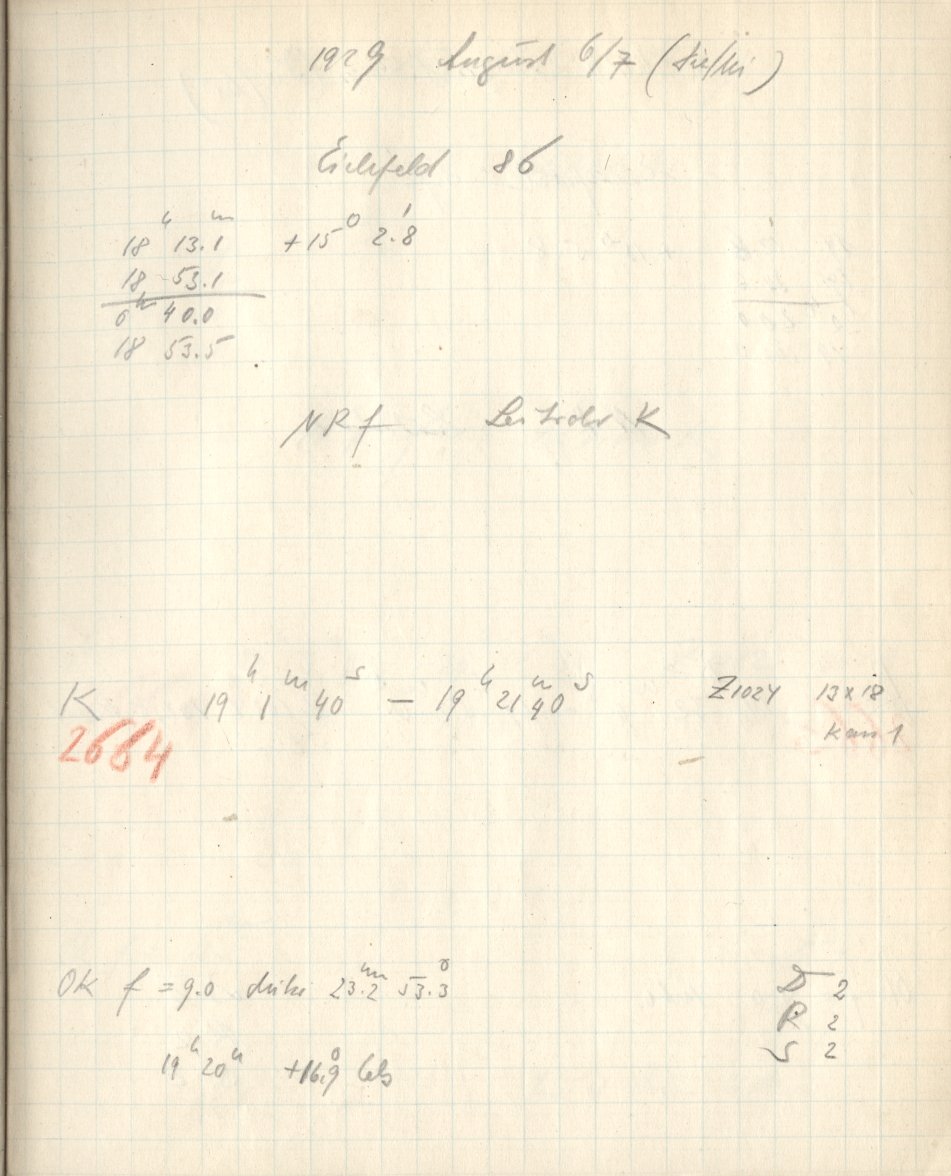 1929 August 6/7
Eichfeld 86
18 h 13.1 m +15° 2.'8
18 53.1
0 h 40.0
18 53.5
NRf Leitrohr K
K 19 h 1 m 40 s — 19 h 21 m 40 s Z1024 13x18
2664 1
OK f = 9.0 23.2 m 53.3° D 2
R 2
S 2
19 h 20 +16.9°